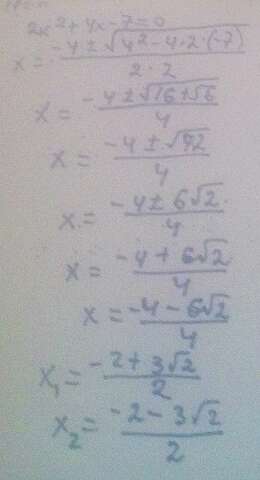 2x² + 4x - 7 = 0
x = (-4 ± √(4² - 4·2·(-7))) / (2·2)
x = (-4 ± √(16 + 56)) / 4
x = (-4 ± √72) / 4
x = (-4 ± 6√2) / 4
x = (-4 + 6√2) / 4
x = (-4 - 6√2) / 4
x₁ = (-2 + 3√2) / 2
x₂ = (-2 - 3√2) / 2